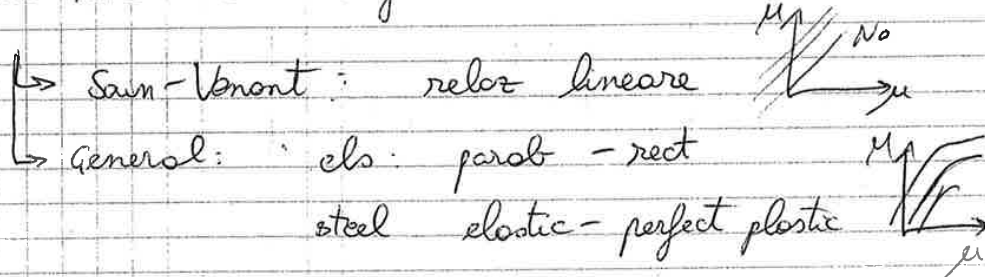 M No
Sain-Venant: relaz lineare μ
General: cls: parab - rect M
steel elastic-perfect plastic
μ